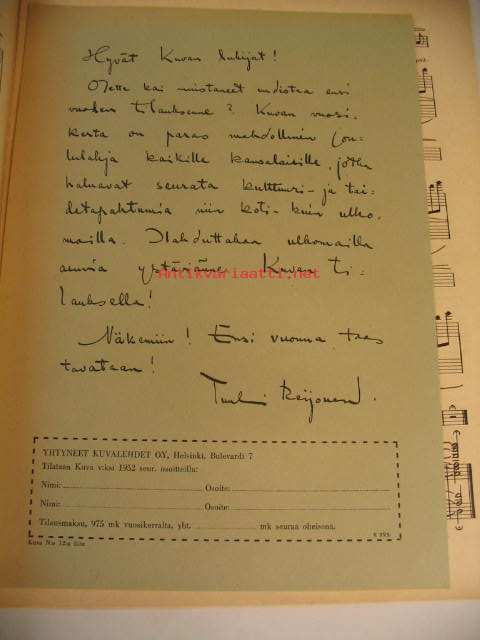 Hyvät Kuvan lukijat!
Olette kai muistaneet uudistaa ensi
vuoden tilauksenne? Kuvan vuosi-
kerta on paras mahdollinen jou-
lulahja kaikille kansalaisille, jotka
haluavat seurata kulttuuri- ja tai-
detapahtumia niin koti- kuin ulko-
mailla. Ilahduttakaa ulkomailla
asuvia ystäviänne Kuvan ti-
lauksella!
Antikvariaatti.net
Näkemiin! Ensi vuonna taas
tavataan!
Tuuli Reijonen.
YHTYNEET KUVALEHDET OY, Helsinki, Bulevardi 7
Tilataan Kuva v:ksi 1952 seur. osoitteilla:
Nimi: Osoite:
Nimi: Osoite:
Tilausmaksu, 975 mk vuosikerralta, yht. mk seuraa oheisena.
Kuva N:o 12:n liite